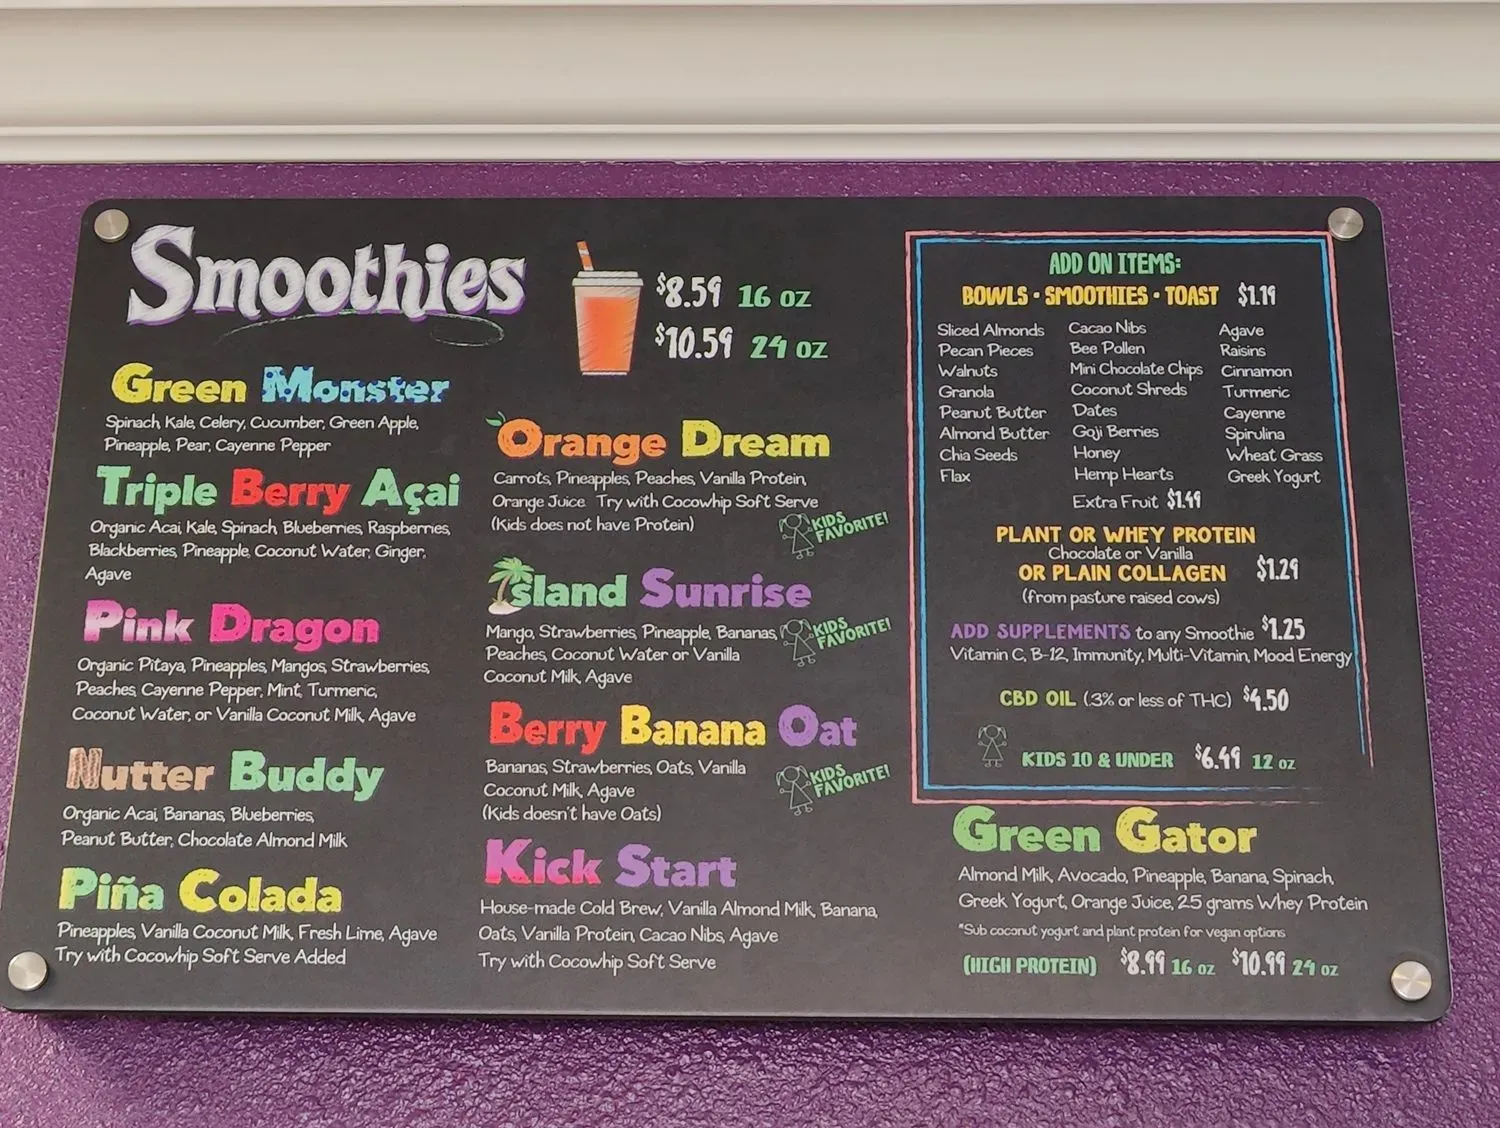 Smoothies
$8.59 16 oz
$10.59 24 oz
Green Monster
Spinach, Kale, Celery, Cucumber, Green Apple,
Pineapple, Pear, Cayenne Pepper
Triple Berry Açai
Organic Acai, Kale, Spinach, Blueberries, Raspberries,
Blackberries, Pineapple, Coconut Water, Ginger,
Agave
Pink Dragon
Organic Pitaya, Pineapples, Mangos, Strawberries,
Peaches, Cayenne Pepper, Mint, Turmeric,
Coconut Water, or Vanilla Coconut Milk, Agave
Nutter Buddy
Organic Acai, Bananas, Blueberries,
Peanut Butter, Chocolate Almond Milk
Piña Colada
Pineapples, Vanilla Coconut Milk, Fresh Lime, Agave
Try with Cocowhip Soft Serve Added
Orange Dream
Carrots, Pineapples, Peaches, Vanilla Protein,
Orange Juice Try with Cocowhip Soft Serve
(Kids does not have Protein)
KIDS
FAVORITE!
Island Sunrise
Mango, Strawberries, Pineapple, Bananas,
Peaches, Coconut Water or Vanilla
Coconut Milk, Agave
KIDS
FAVORITE!
Berry Banana Oat
Bananas, Strawberries, Oats, Vanilla
Coconut Milk, Agave
(Kids doesn't have Oats)
KIDS
FAVORITE!
Kick Start
House-made Cold Brew, Vanilla Almond Milk, Banana,
Oats, Vanilla Protein, Cacao Nibs, Agave
Try with Cocowhip Soft Serve
ADD ON ITEMS:
BOWLS • SMOOTHIES • TOAST $1.19
Sliced Almonds
Pecan Pieces
Walnuts
Granola
Peanut Butter
Almond Butter
Chia Seeds
Flax
Cacao Nibs
Bee Pollen
Mini Chocolate Chips
Coconut Shreds
Dates
Goji Berries
Honey
Hemp Hearts
Extra Fruit $1.49
Agave
Raisins
Cinnamon
Turmeric
Cayenne
Spirulina
Wheat Grass
Greek Yogurt
PLANT OR WHEY PROTEIN
Chocolate or Vanilla
OR PLAIN COLLAGEN $1.29
(from pasture raised cows)
ADD SUPPLEMENTS to any Smoothie $1.25
Vitamin C, B-12, Immunity, Multi-Vitamin, Mood Energy
CBD OIL (.3% or less of THC) $4.50
KIDS 10 & UNDER $6.49 12 oz
Green Gator
Almond Milk, Avocado, Pineapple, Banana, Spinach,
Greek Yogurt, Orange Juice, 25 grams Whey Protein
*Sub coconut yogurt and plant protein for vegan options
(HIGH PROTEIN) $8.99 16 oz $10.99 24 oz